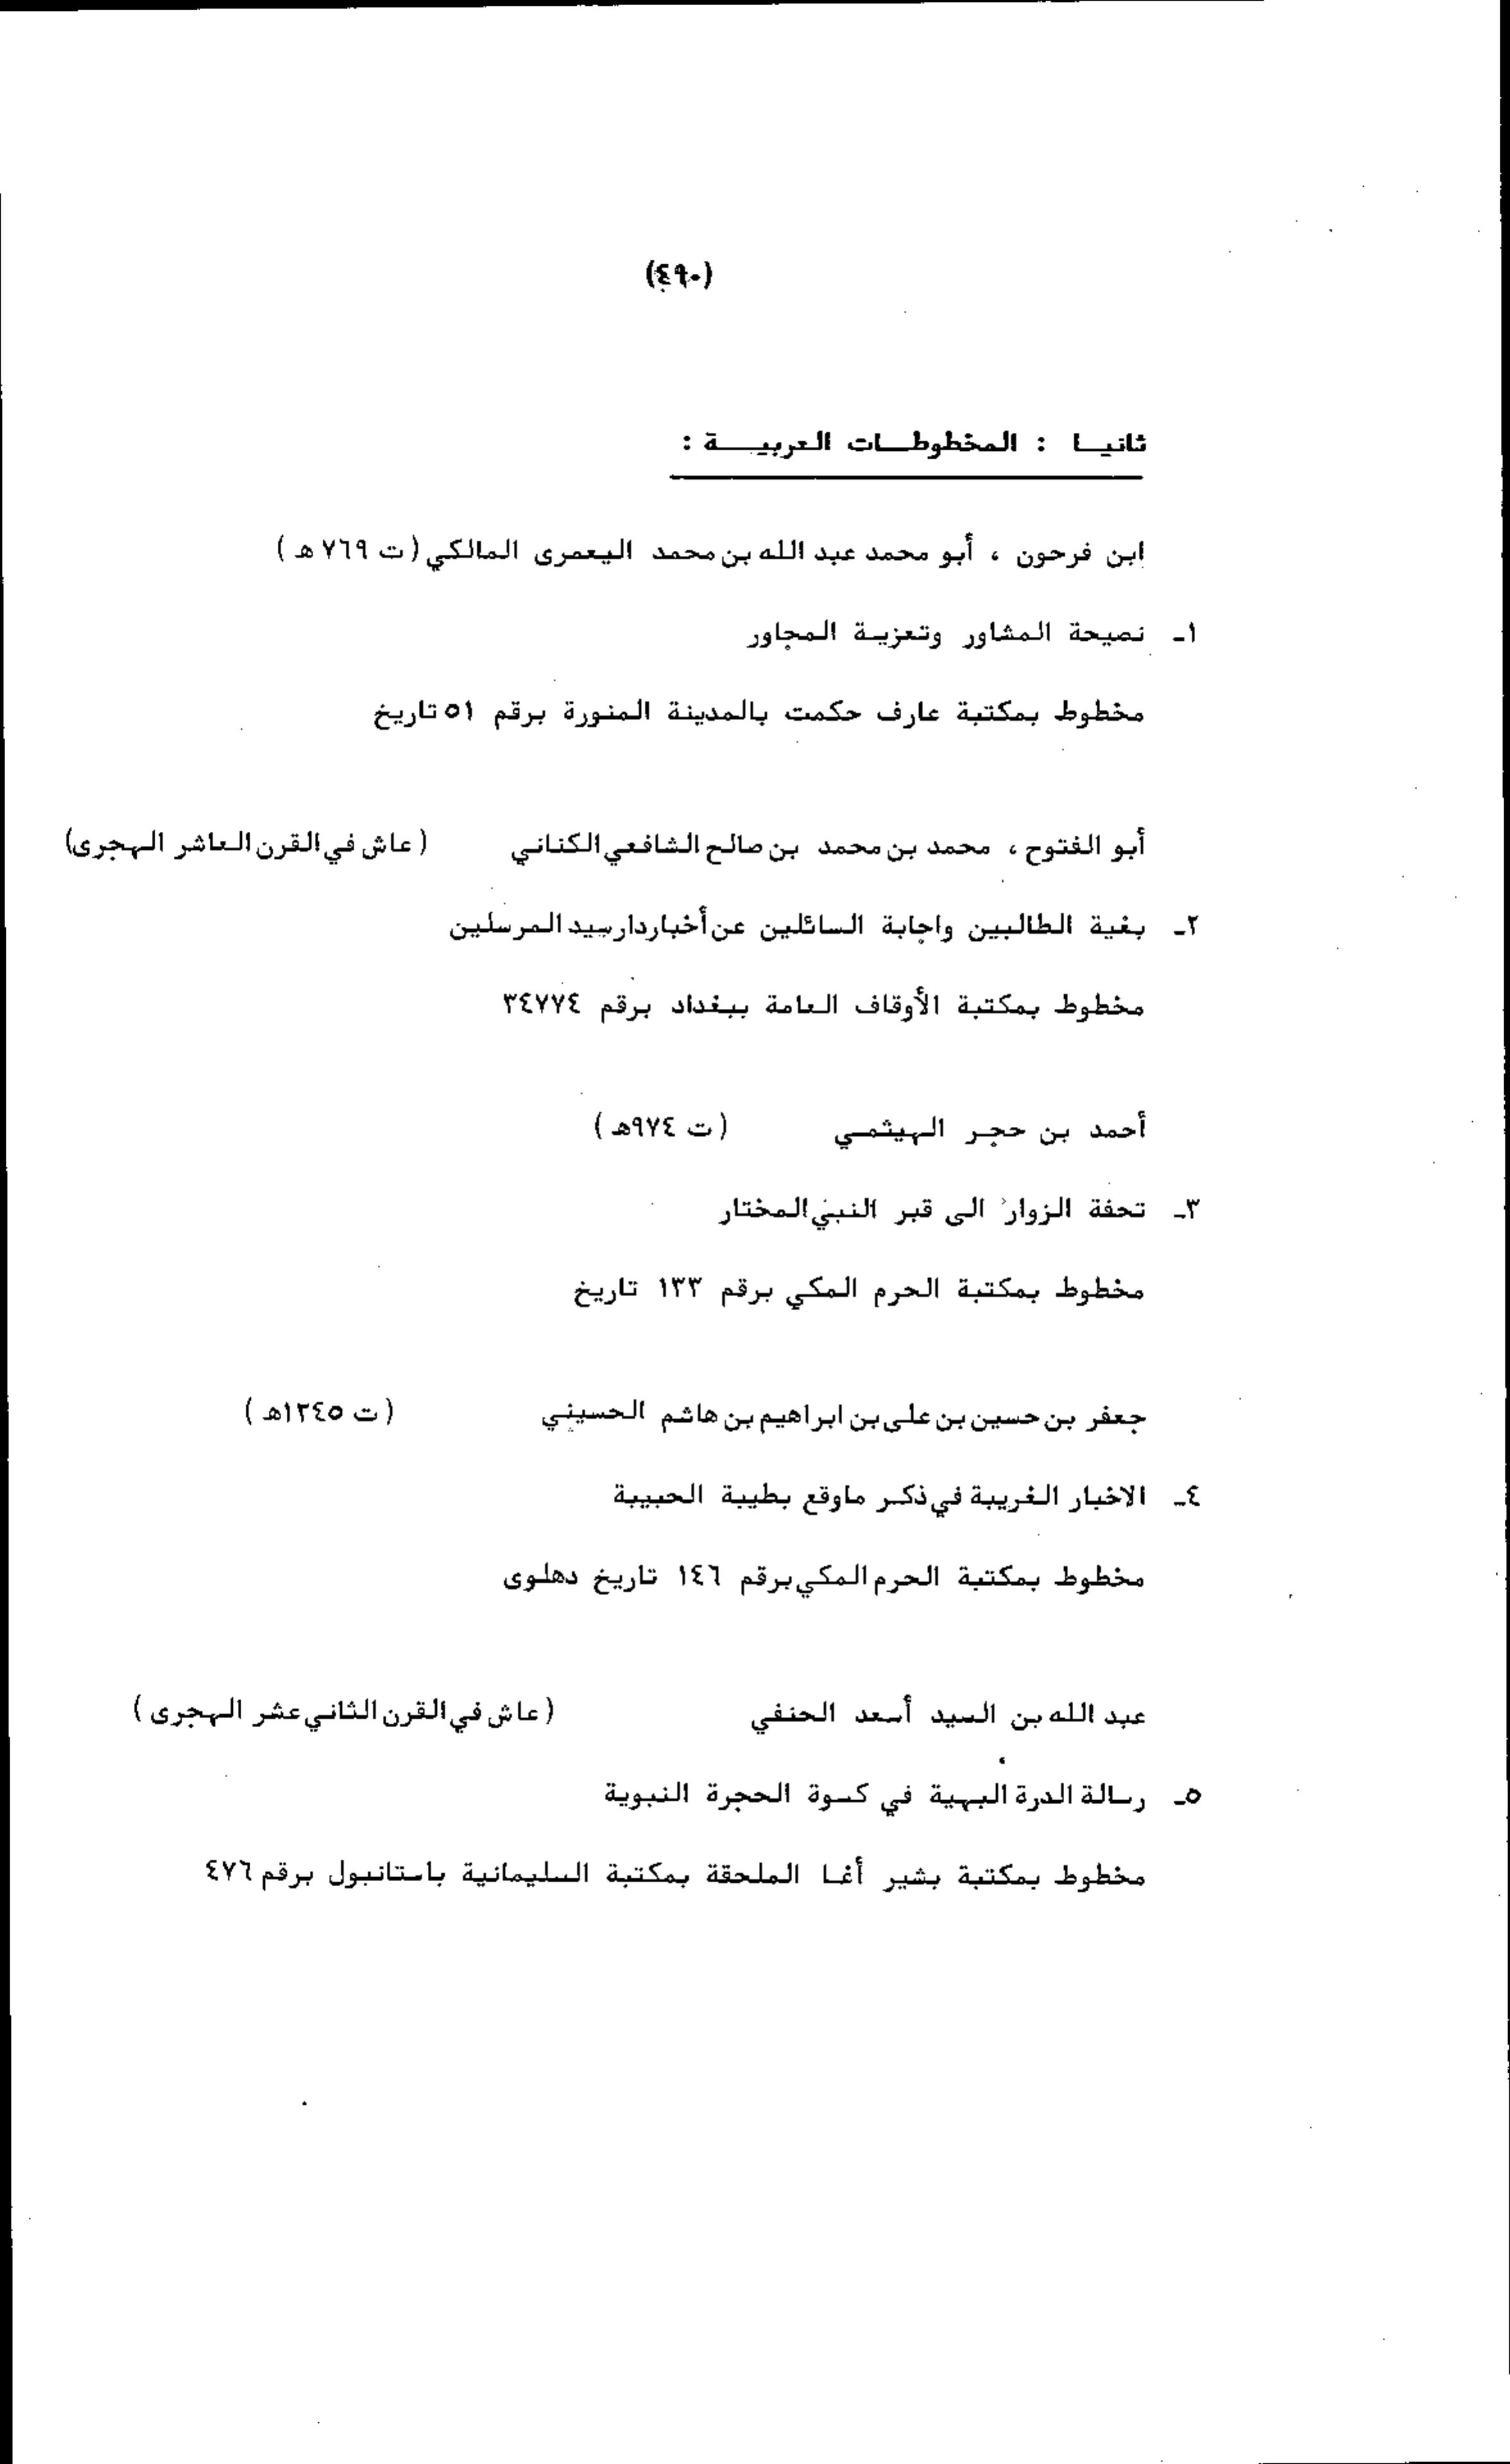 (٤٩٠)
ثانيا : المخطوطات العربية :
ابن فرحون ، أبو محمد عبد الله بن محمد اليعمرى المالكي ( ت ٧٦٩ هـ )
١ـ نصيحة المشاور وتعزية المجاور
مخطوط بمكتبة عارف حكمت بالمدينة المنورة برقم ٥١ تاريخ
أبو الفتوح ، محمد بن محمد بن صالح الشافعي الكناني ( عاش في القرن العاشر الهجرى)
٢ـ بغية الطالبين واجابة السائلين عن أخبار دار سيد المرسلين
مخطوط بمكتبة الأوقاف العامة ببغداد برقم ٣٤٧٧٤
أحمد بن حجر الهيثمي ( ت ٩٧٤هـ )
٣ـ تحفة الزوار الى قبر النبي المختار
مخطوط بمكتبة الحرم المكي برقم ١٣٣ تاريخ
جعفر بن حسين بن على بن ابراهيم بن هاشم الحسيني ( ت ١٢٤٥هـ )
٤ـ الاخبار الغريبة في ذكر ماوقع بطيبة الحبيبة
مخطوط بمكتبة الحرم المكي برقم ١٤٦ تاريخ دهلوى
عبد الله بن السيد أسعد الحنفي ( عاش في القرن الثاني عشر الهجرى )
٥ـ رسالة الدرة البهية في كسوة الحجرة النبوية
مخطوط بمكتبة بشير أغا الملحقة بمكتبة السليمانية باستانبول برقم ٤٧٦